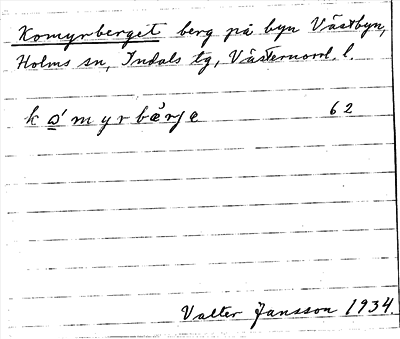 Komyrberget berg på byn Västbyn,
Holms sn, Indals tg, Västernorrl. l.
ko̲'myrbæ̀rjɛ 62
Valter Jansson 1934.